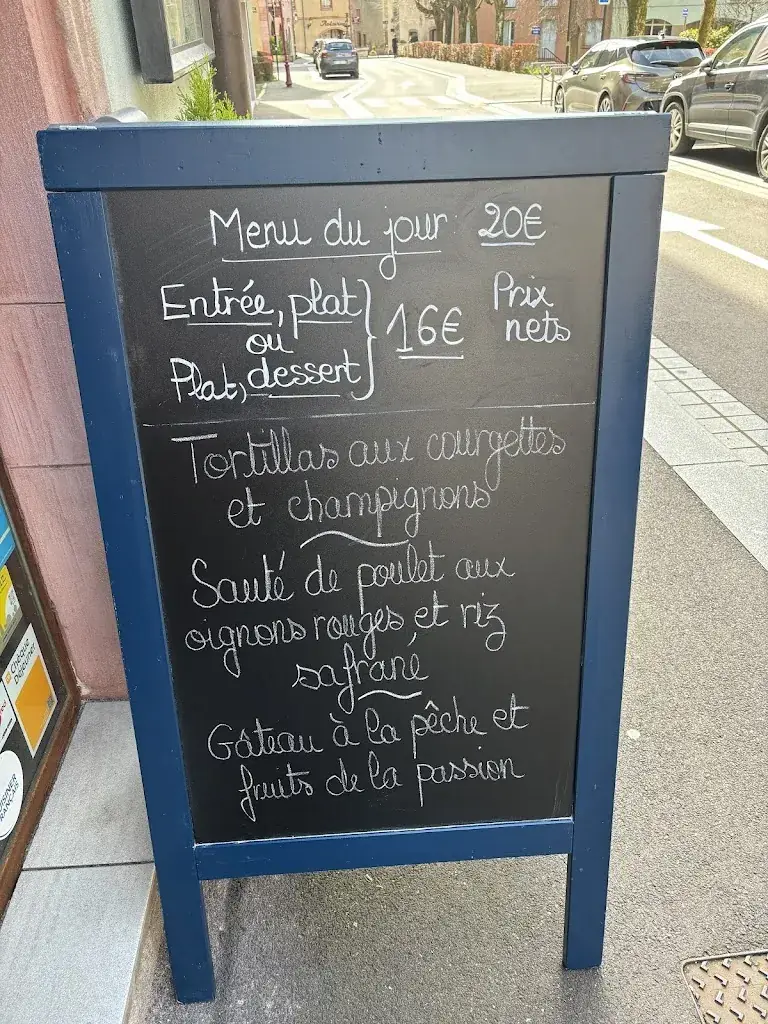 Menu du jour 20€
Entrée, plat
ou
Plat, dessert
16€
Prix
nets
Tortillas aux courgettes
et champignons
Sauté de poulet aux
oignons rouges et riz
safrané
Gâteau à la pêche et
fruits de la passion
Chèque
Déjeuner